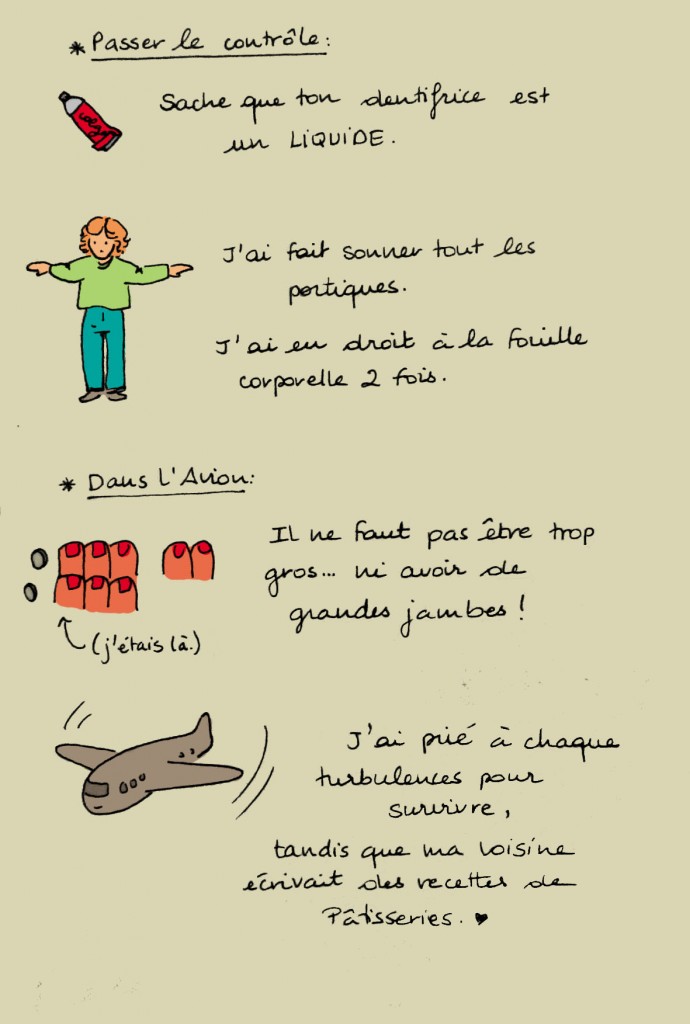 * Passer le contrôle:
Sache que ton dentifrice est
un LIQUIDE.
J'ai fait sonner tout les
portiques.
J'ai eu droit à la fouille
corporelle 2 fois.
* Dans l'Avion:
Il ne faut pas être trop
gros... ni avoir de
grandes jambes !
(j'étais là.)
J'ai prié à chaque
turbulences pour
survivre,
tandis que ma voisine
écrivait des recettes de
Pâtisseries. ♥